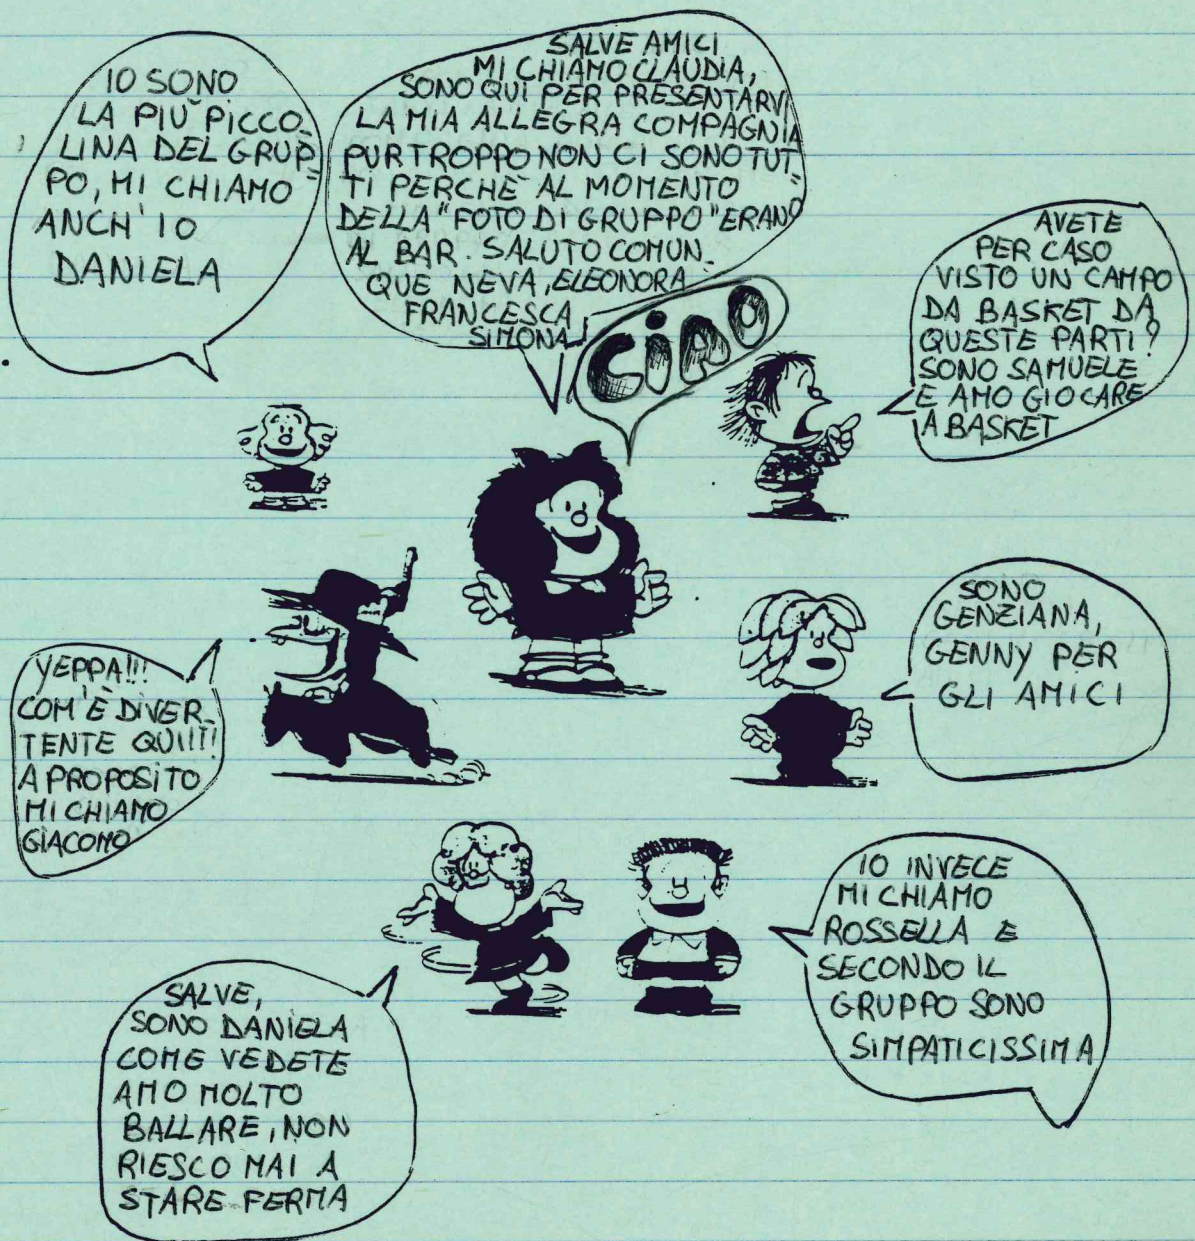 IO SONO
LA PIU' PICCO_
LINA DEL GRUP=
PO, MI CHIAMO
ANCH' IO
DANIELA
SALVE AMICI
MI CHIAMO CLAUDIA,
SONO QUI PER PRESENTARVI
LA MIA ALLEGRA COMPAGNIA
PURTROPPO NON CI SONO TUT=
TI PERCHE' AL MOMENTO
DELLA "FOTO DI GRUPPO" ERANO
AL BAR. SALUTO COMUN_
QUE NEVA, ELEONORA
FRANCESCA
SIMONA
CIAO
AVETE
PER CASO
VISTO UN CAMPO
DA BASKET DA
QUESTE PARTI?
SONO SAMUELE
E AMO GIOCARE
A BASKET
SONO
GENZIANA,
GENNY PER
GLI AMICI
YEPPA!!!
COM'È DIVER_
TENTE QUI!!!!
A PROPOSITO
MI CHIAMO
GIACOMO
IO INVECE
MI CHIAMO
ROSSELLA E
SECONDO IL
GRUPPO SONO
SIMPATICISSIMA
SALVE,
SONO DANIELA
COME VEDETE
AMO MOLTO
BALLARE, NON
RIESCO MAI A
STARE FERMA